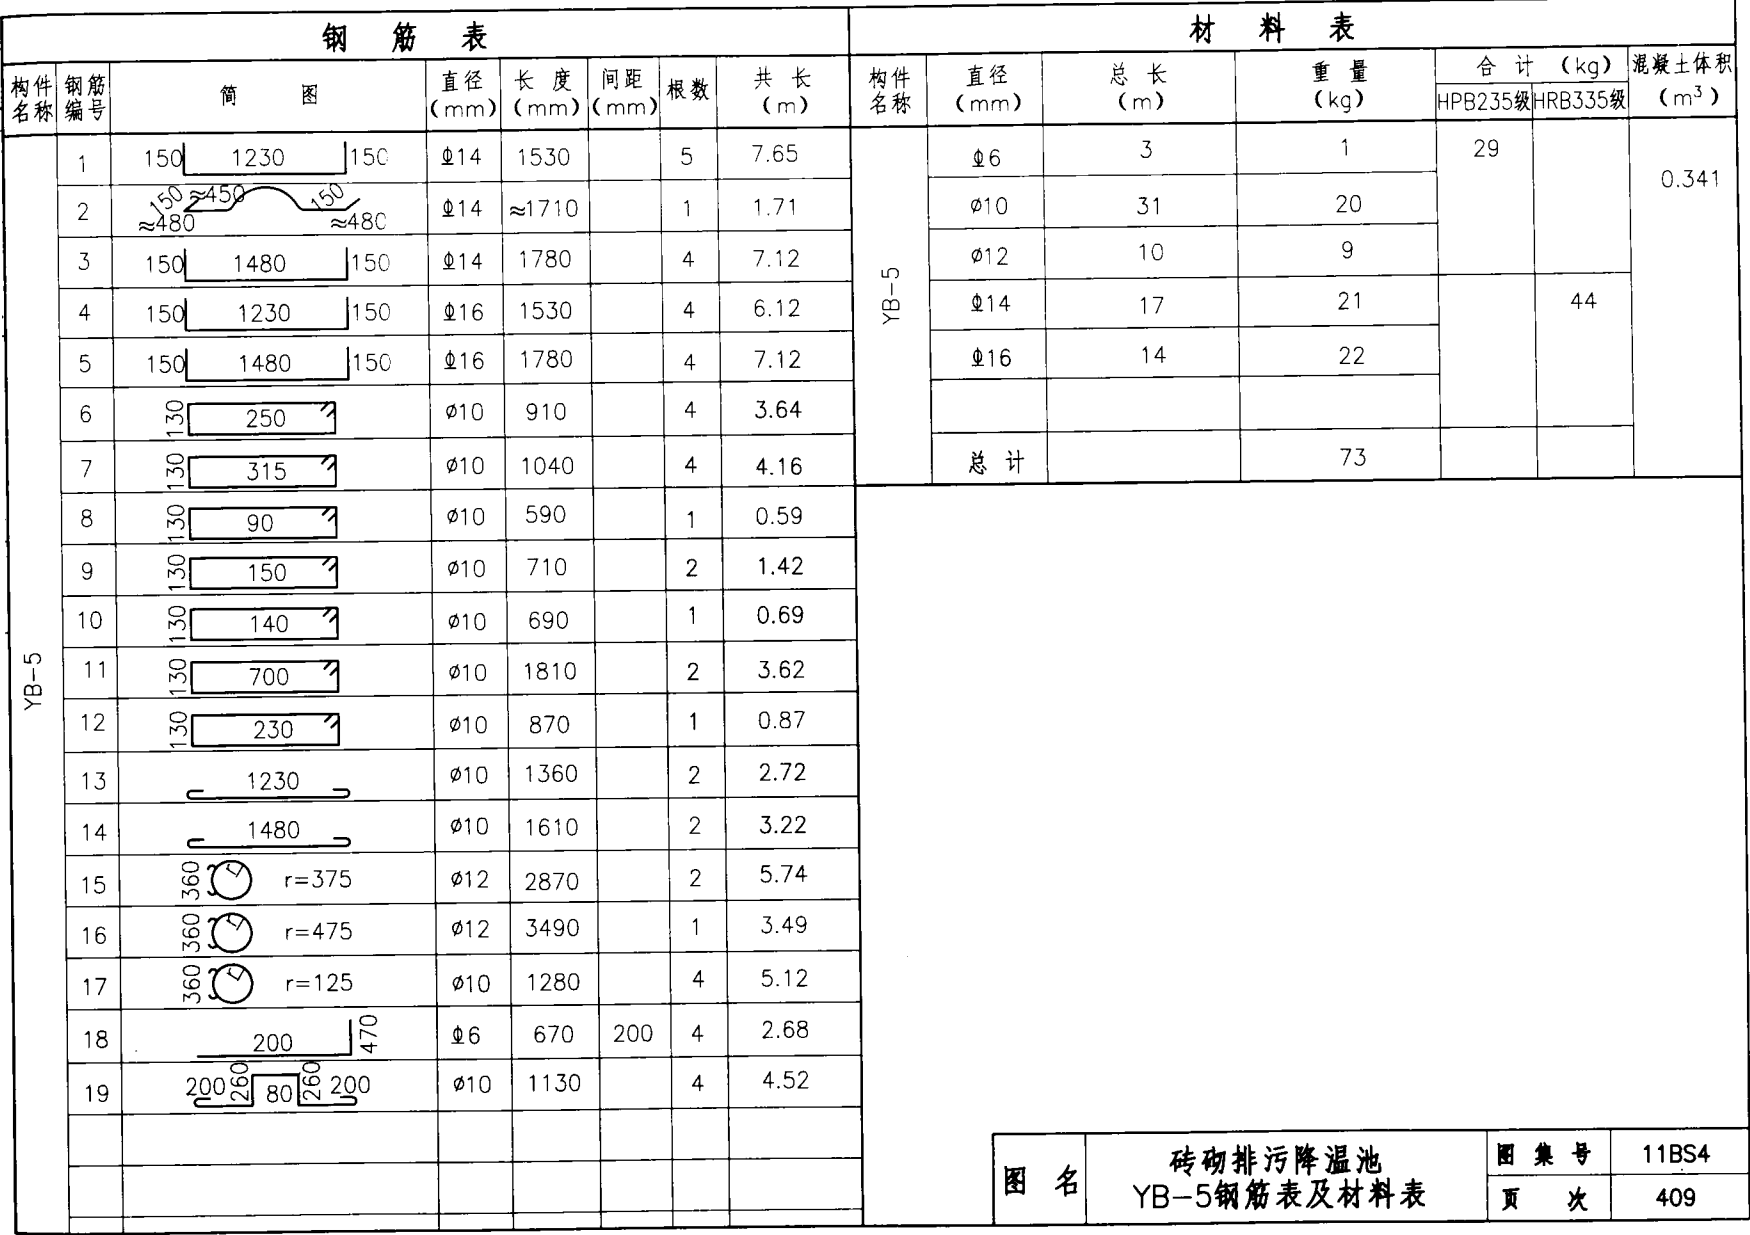 钢 筋 表
构件名称 钢筋编号 简 图 直径(mm) 长度(mm) 间距(mm) 根数 共长(m)
YB-5
1 150 1230 150 Φ14 1530 5 7.65
2 150 ≈450 150 ≈480 ≈480 Φ14 ≈1710 1 1.71
3 150 1480 150 Φ14 1780 4 7.12
4 150 1230 150 Φ16 1530 4 6.12
5 150 1480 150 Φ16 1780 4 7.12
6 130 250 ø10 910 4 3.64
7 130 315 ø10 1040 4 4.16
8 130 90 ø10 590 1 0.59
9 130 150 ø10 710 2 1.42
10 130 140 ø10 690 1 0.69
11 130 700 ø10 1810 2 3.62
12 130 230 ø10 870 1 0.87
13 1230 ø10 1360 2 2.72
14 1480 ø10 1610 2 3.22
15 360 r=375 ø12 2870 2 5.74
16 360 r=475 ø12 3490 1 3.49
17 360 r=125 ø10 1280 4 5.12
18 200 470 Φ6 670 200 4 2.68
19 200 260 80 260 200 ø10 1130 4 4.52
材 料 表
构件名称 直径(mm) 总长(m) 重量(kg) 合计(kg) 混凝土体积(m³)
HPB235级 HRB335级
YB-5
Φ6 3 1 29 0.341
ø10 31 20
ø12 10 9
Φ14 17 21 44
Φ16 14 22
总计 73
图 名 砖砌排污降温池 图集号 11BS4
YB-5钢筋表及材料表 页 次 409